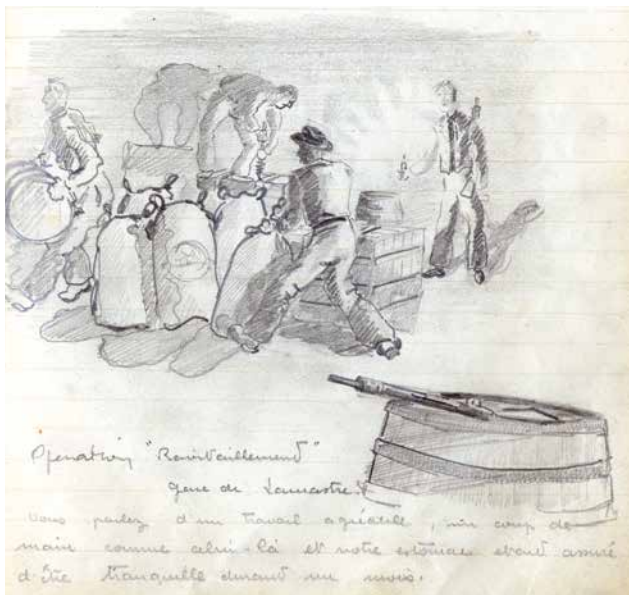 Opération "Ravitaillement"
gare de Lamastre.
Vous parlez d'un travail agréable, un coup de
main comme celui-là et notre estomac etait assuré
d'être tranquille durant un mois.